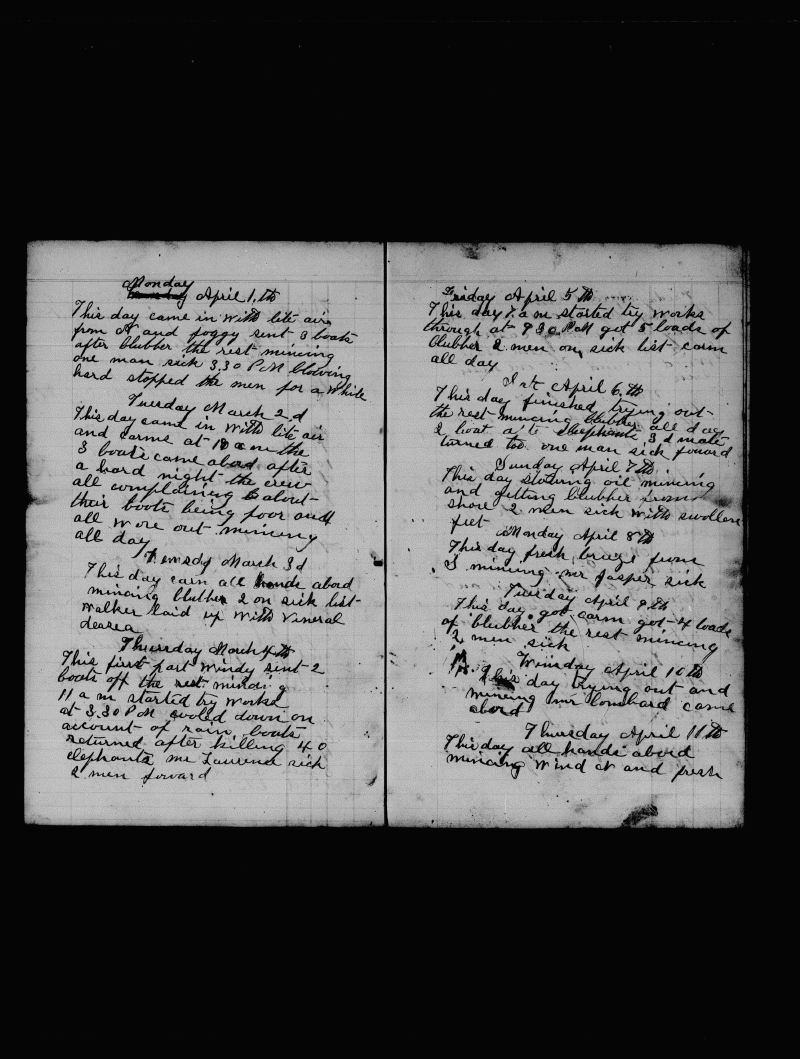 Monday
April 1.th
This day came in with lite airs
from N and foggy sent 3 boats
after blubber the rest mincing
one man sick 3.30 P M blowing
hard stopped the men for a while
Tuesday March 2.d
This day came in with lite air
and carme at 10 a m the
3 boats came abord after
a hard night the crew
all complaining about
their boots being poor and
all wore out mincing
all day
March 3d
This day carm all hands abord
mincing blubber 2 on sick list
Walker laid up with veneral
deazea
Thursday March 4th
This first part windy sent 2
boats off the rest minding
11 a m started try works
at 3.30 P M cooled down on
account of rain, boats
returned after killing 40
elephants mr Laurence sick
2 men forward
Friday April 5 th
This day 7. a m started try works
through at 9 30 P M got 5 loads of
blubber 2 men on sick list carm
all day
Sat April 6.th
This day finished trying out
the rest mincing blubber all day
2 boat a/c Elephants 3 d mate
turned too one man sick foward
Sunday April 7th
This day stowing oil mincing
and getting blubber from
shore 2 men sick with swollen
feet
Monday April 8th
This day fresh breeze from
S mincing mr Jasper sick
Tuesday April 9th
This day got carm got 4 loads
of blubber the rest mincing
2 men sick
Winsday April 10th
This day trying out and
mincing mr Lombard came
abord
Thursday April 11th
This day all hands abord
mincing wind N and fresh